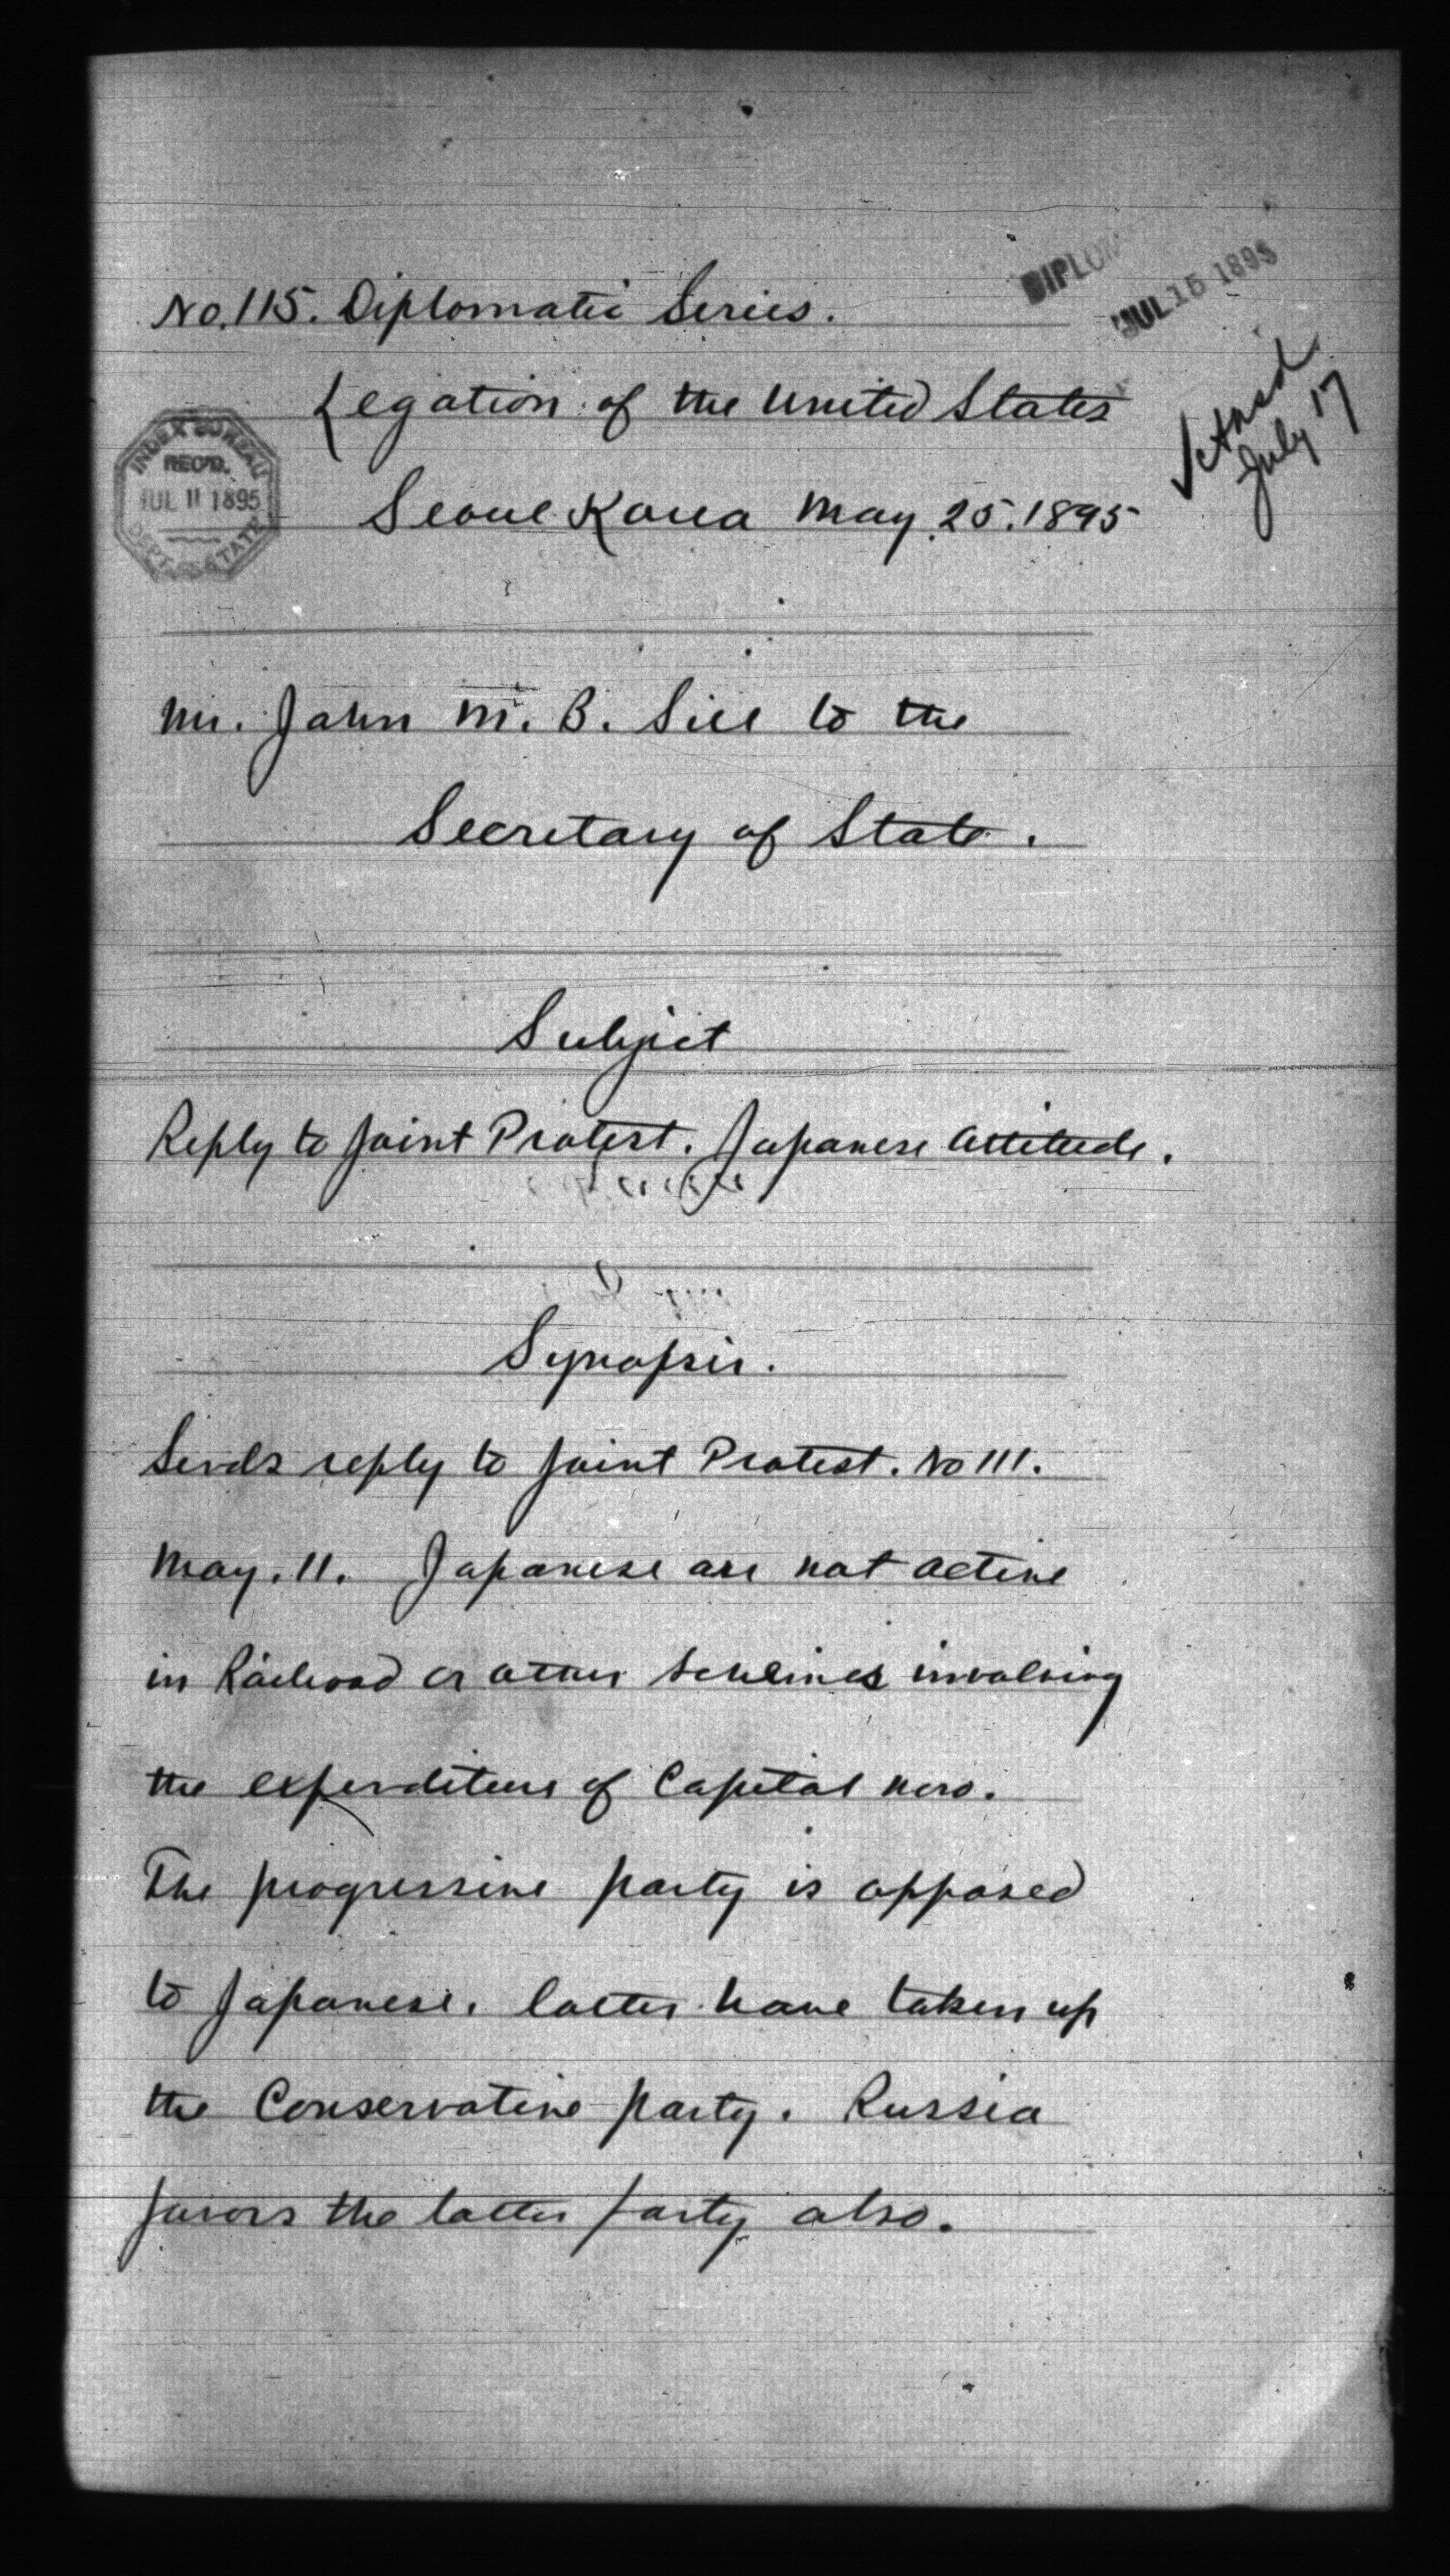 No. 115. Diplomatic Series.
DIPLOM
JUL 15 1895
Legation of the United States
Ansd
July 17
INDEX BUREAU
REC'D.
JUL 11 1895
DEPT. OF STATE
Seoul Korea May 25. 1895
Mr. John M. B. Sill to the
Secretary of State.
Subject
Reply to Joint Protest. Japanese Attitude.
Synopsis.
Sends reply to Joint Protest. No 111.
May. 11. Japanese are not active
in Railroad or other schemes involving
the expenditure of Capital now.
The progressive party is opposed
to Japanese. latter have taken up
the Conservative party. Russia
favors the latter party also.